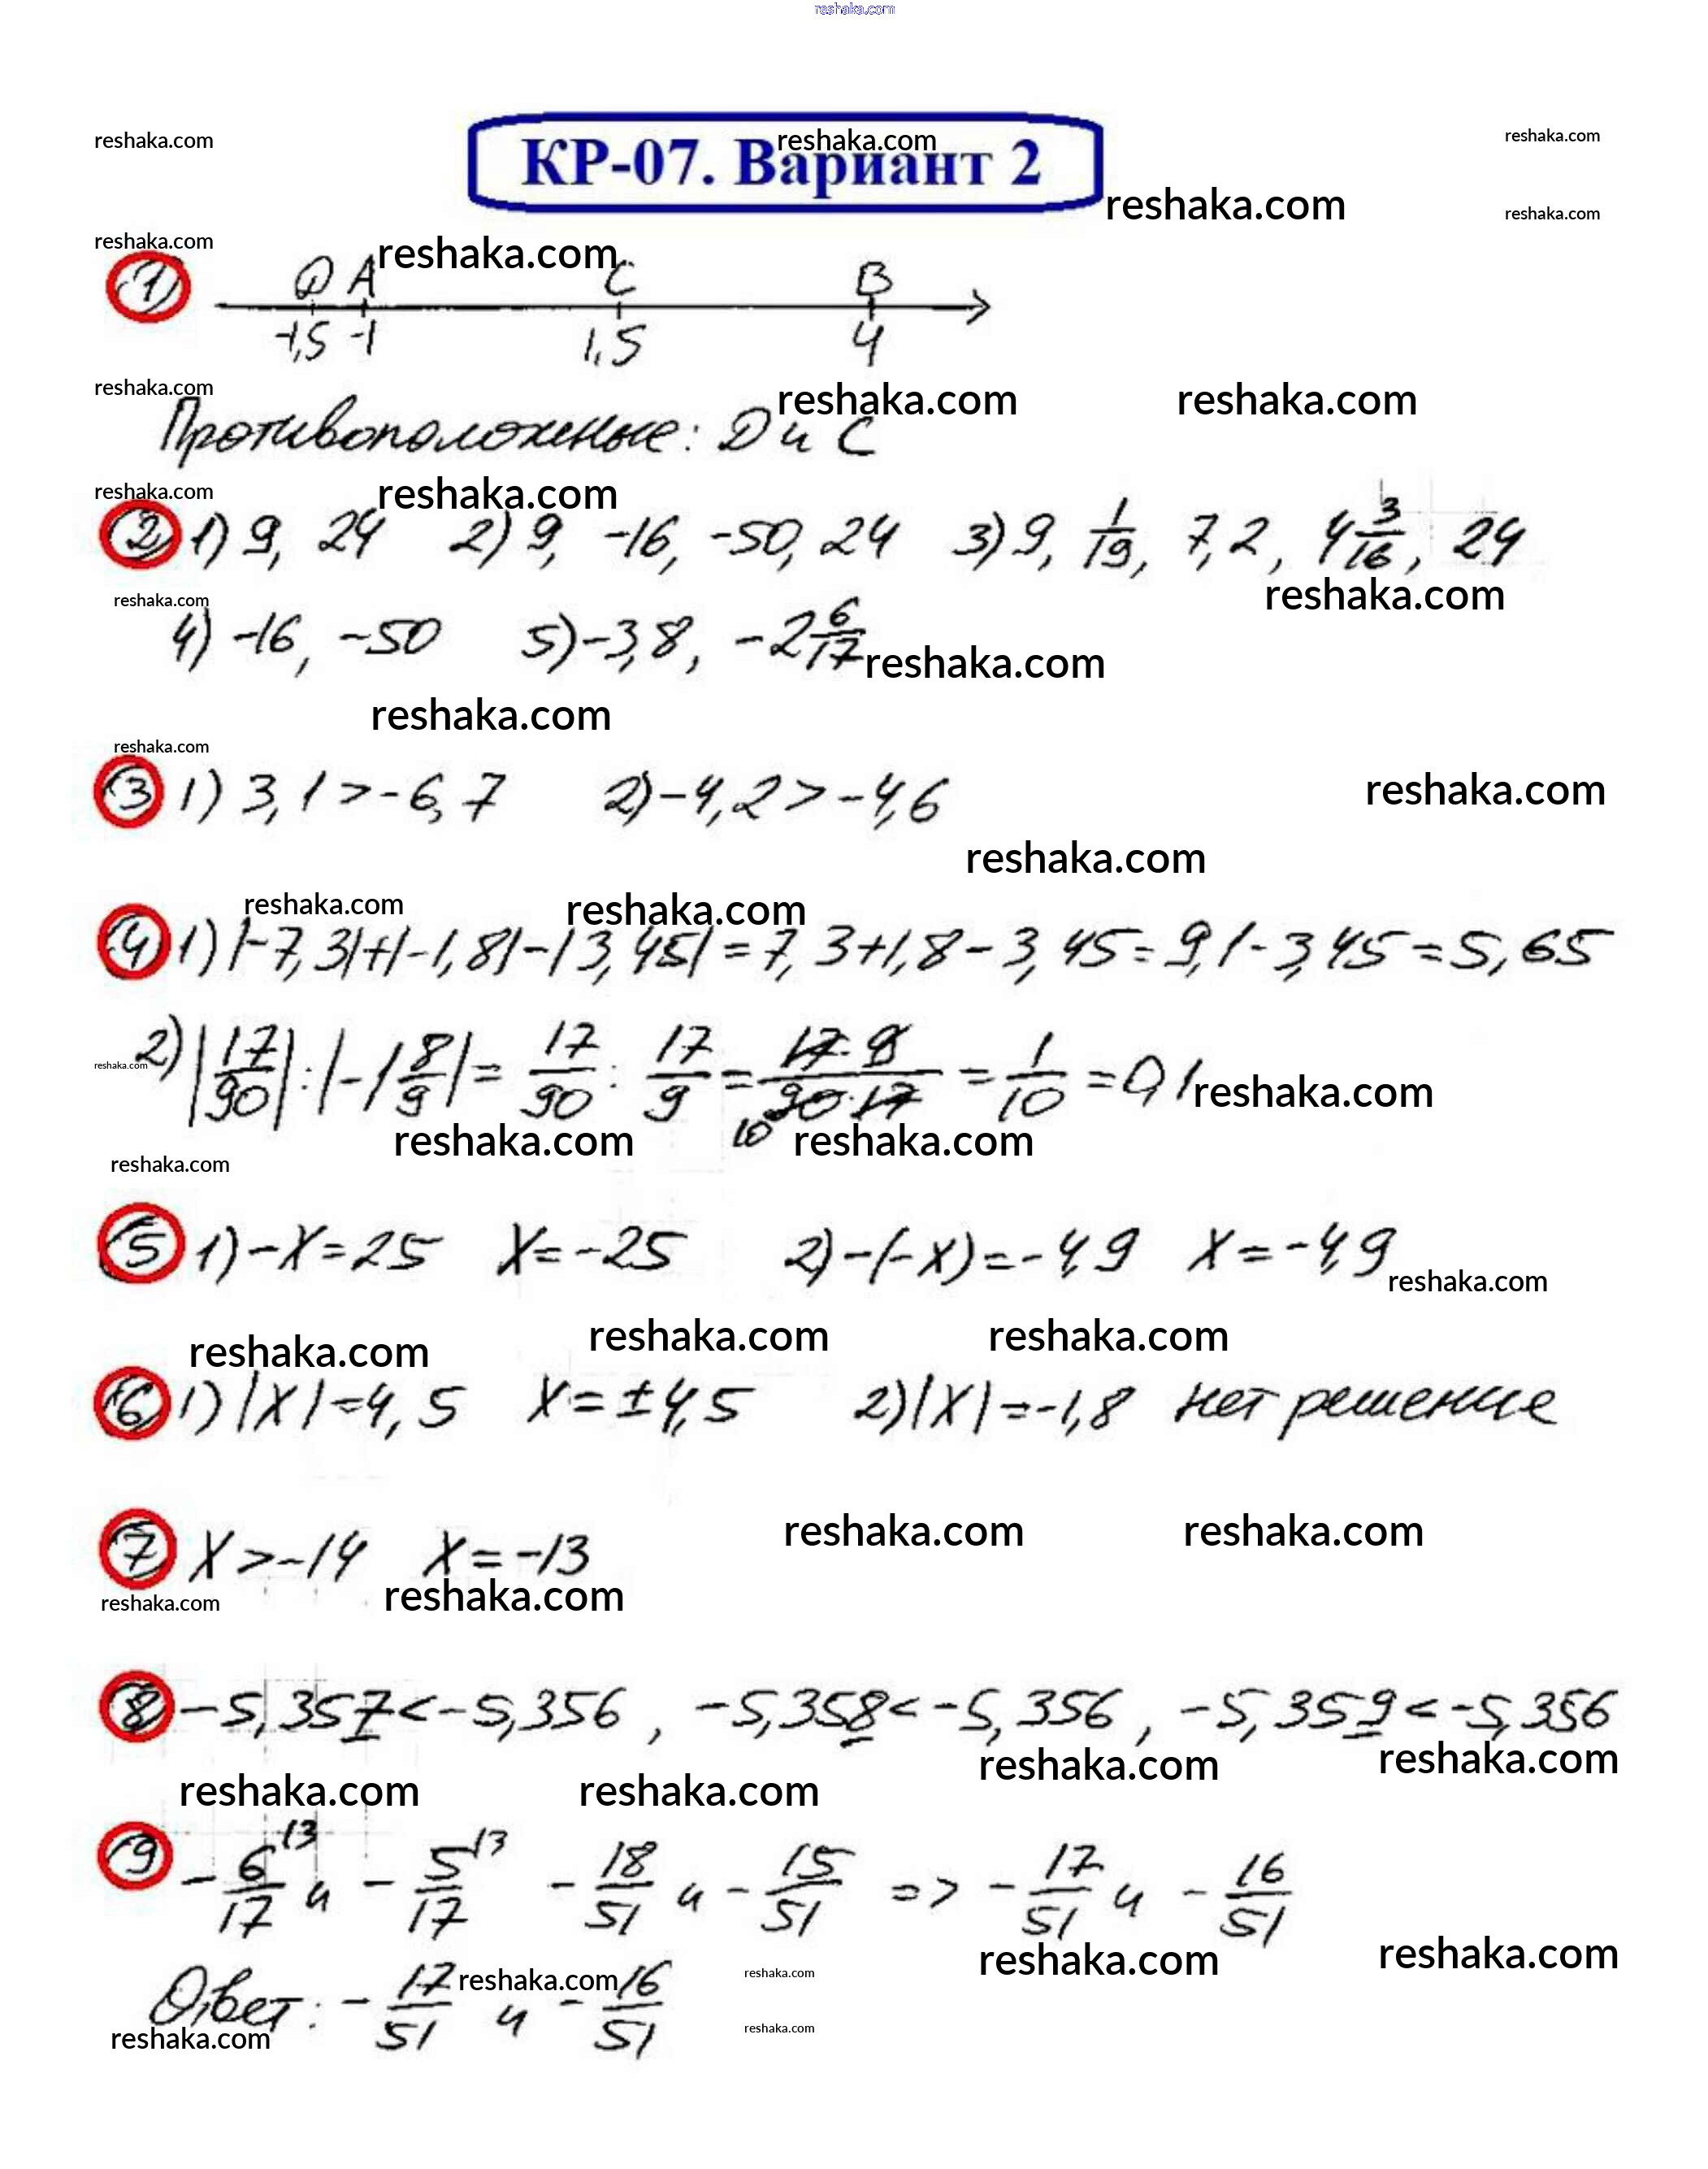 reshaka.com
reshaka.com КР-07. Вариант 2 reshaka.com reshaka.com
reshaka.com reshaka.com
reshaka.com reshaka.com
1 D A C B
-1,5 -1 1,5 4
reshaka.com reshaka.com reshaka.com
Противоположные: D и C
reshaka.com reshaka.com
2 1) 9, 24 2) 9, -16, -50, 24 3) 9, 1/19, 7,2, 4 3/16, 24
reshaka.com reshaka.com
4) -16, -50 5) -3,8, -2 6/17 reshaka.com
reshaka.com
reshaka.com
3 1) 3,1 > -6,7 2) -4,2 > -4,6 reshaka.com
reshaka.com
reshaka.com reshaka.com
4 1) |-7,3|+|-1,8|-|3,45| = 7,3+1,8-3,45 = 9,1-3,45 = 5,65
2) |17/90| : |-1 8/9| = 17/90 : 17/9 = 17·9/90·17 = 1/10 = 0,1 reshaka.com
reshaka.com
10 reshaka.com reshaka.com
reshaka.com
5 1) -x = 25 x = -25 2) -(-x) = -4,9 x = -4,9
reshaka.com
reshaka.com reshaka.com reshaka.com
6 1) |x| = 4,5 x = ±4,5 2) |x| = -1,8 нет решение
7 x > -14 x = -13 reshaka.com reshaka.com
reshaka.com reshaka.com
8 -5,357 < -5,356, -5,358 < -5,356, -5,359 < -5,356
reshaka.com reshaka.com
reshaka.com reshaka.com
9 -6/17 \3 и -5/17 \3 -18/51 и -15/51 => -17/51 и -16/51
reshaka.com reshaka.com
Ответ: -17/51 и -16/51
reshaka.com reshaka.com
reshaka.com reshaka.com